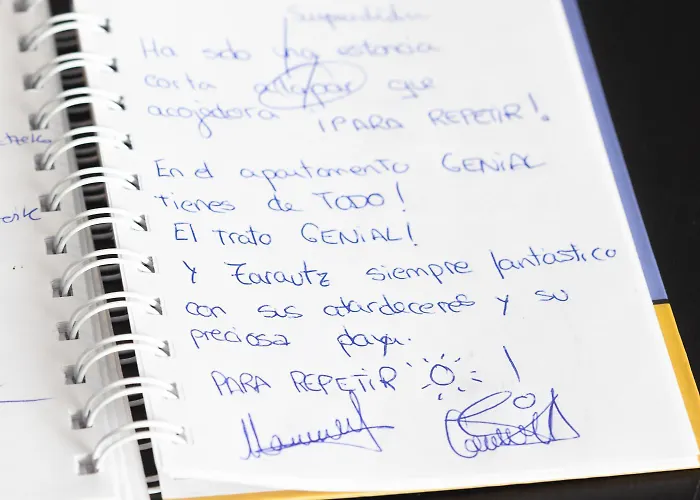 Ha sido una estancia
corta a la par que
acojedora ¡PARA REPETIR!.
En el apartamento GENIAL
tienes de TODO!
El trato GENIAL!
Y Zarautz siempre fantástico
con sus atardeceres y su
preciosa playa.
PARA REPETIR !